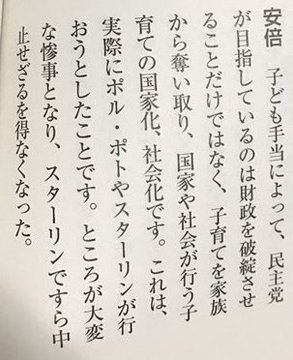 安倍　子ども手当によって、民主党
が目指しているのは財政を破綻させ
ることだけではなく、子育てを家族
から奪い取り、国家や社会が行う子
育ての国家化、社会化です。これは、
実際にポル・ポトやスターリンが行
おうとしたことです。ところが大変
な惨事となり、スターリンですら中
止せざるを得なくなった。